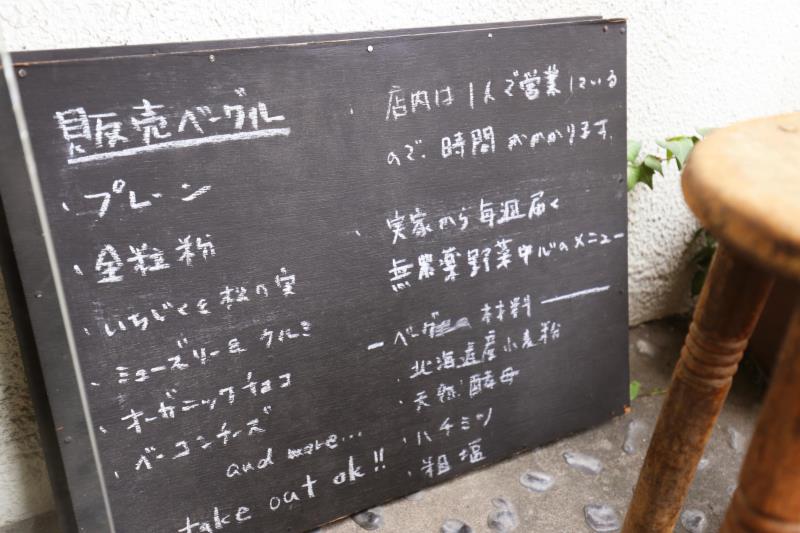 販売ベーグル
・プレーン
・全粒粉
・いちじく&松の実
・ミューズリー&クルミ
・オーガニックチョコ
・ベーコンチーズ
and more...
take out ok!!
・店内は1人で営業している
ので、時間がかかります。
・実家から毎週届く
無農薬野菜中心のメニュー
ー ベーグル 材料 ー
・北海道産小麦粉
・天然酵母
・ハチミツ
・粗塩